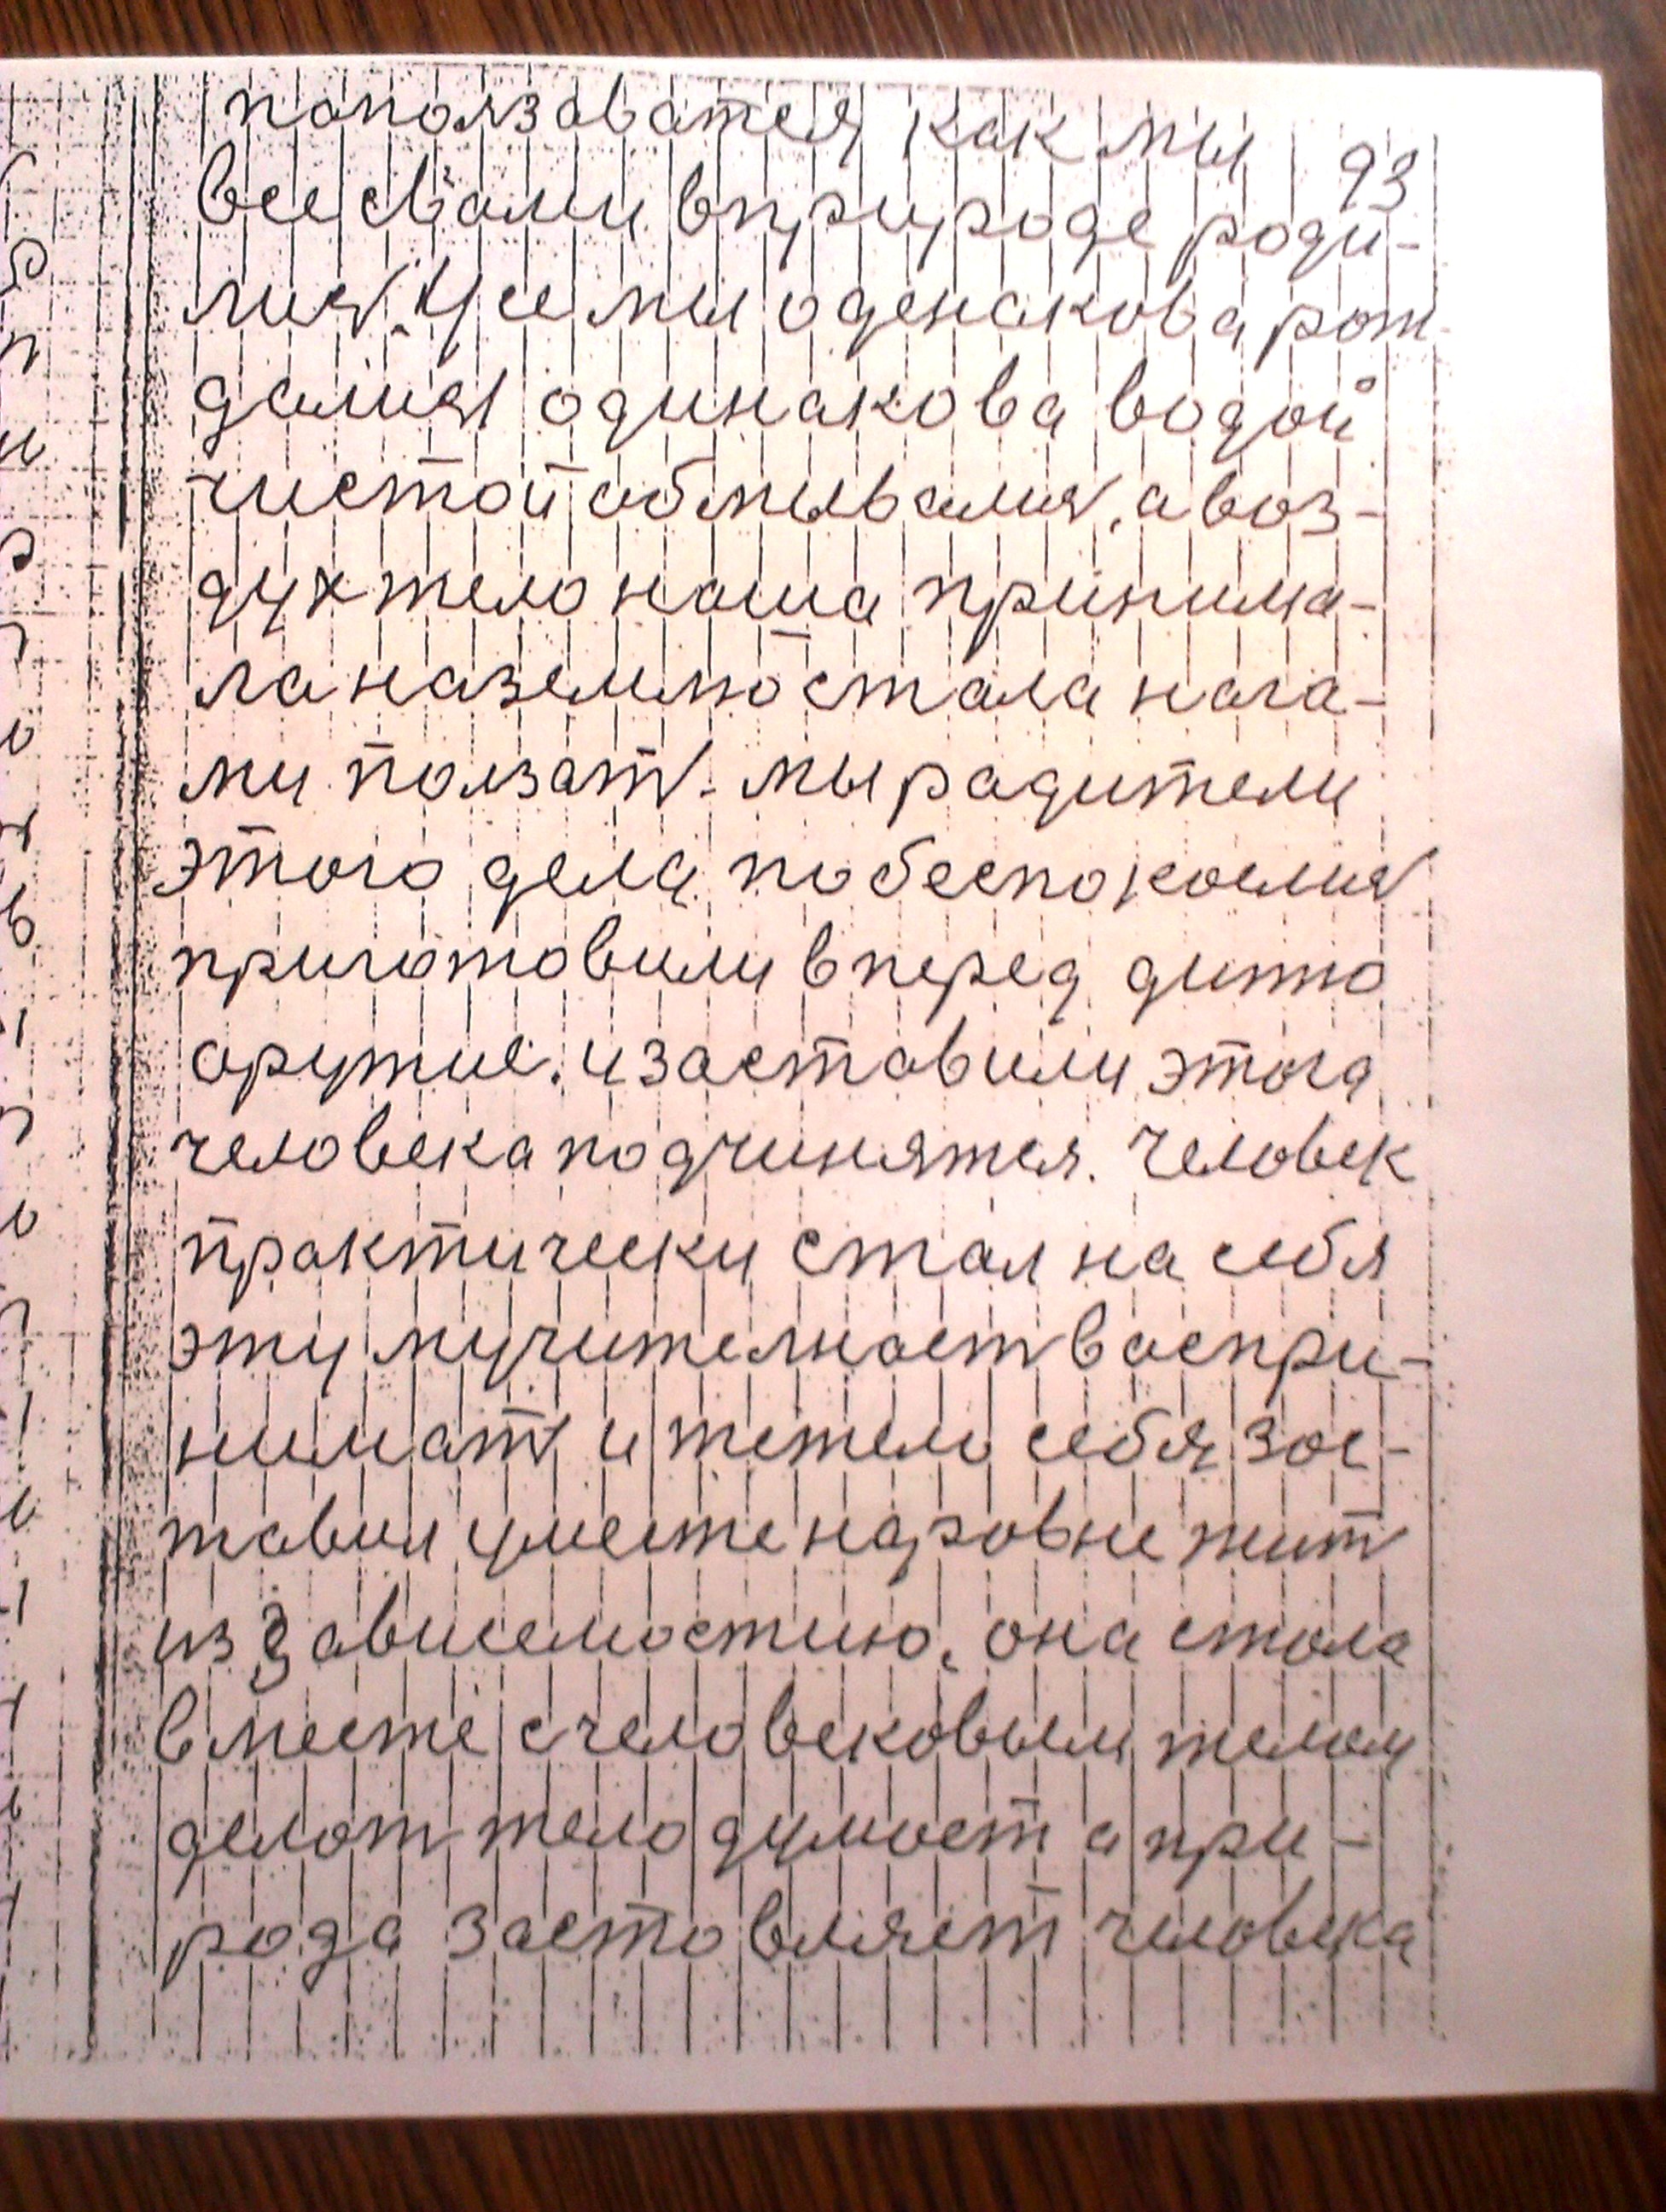 поползаватся как мы
93
все свами вприроде роди-
лися. Усе мы оденакова рот-
далися одинакова водой
чистой обмывалися, а воз-
дух тело наша принима-
ла наземлю стала нага-
ми ползат. мы радители
этого дела побеспокоелися
приготовили вперед дитю
орутие. изаставили этога
человека подчинятся. Человек
практически стал на себя
эту мучителност васпри-
нимат и тетело себя зас-
тавил уместе наровне жит
из зависемостию, она стала
вместе счеловековым телом
делат тело думает а при-
рода заставляет человека